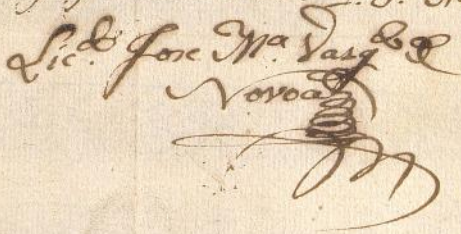 Lic.do Jose Ma. Vasq
Novoa